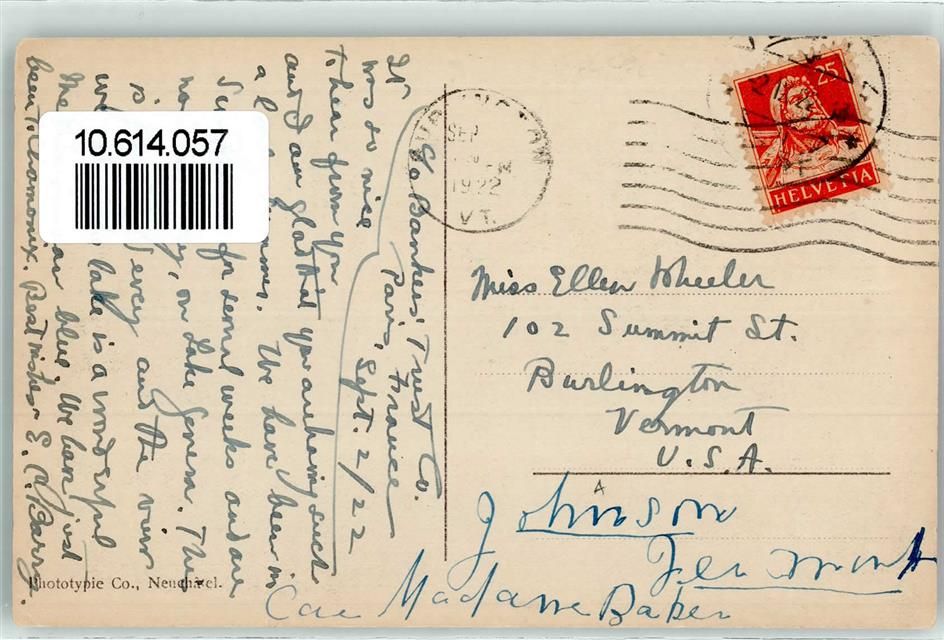 10.614.057
c/o Bankers' Trust Co.
Paris, France
Sept. 2/22
It
was so nice
to hear from you
and I am glad that you are having such
a times. We have been in
for several weeks and are
on Lake Geneva. The
is every and the view
lake is a wonderful
blue. We have just
been to Chamonix. Best wishes E.
Phototypie Co., Neuchâtel.
SEP
1922
VT.
25
HELVETIA
Miss Ellen Wheeler
102 Summit St.
Burlington
Vermont
U.S.A.
Johnson
Vermont
Care Madame Baker